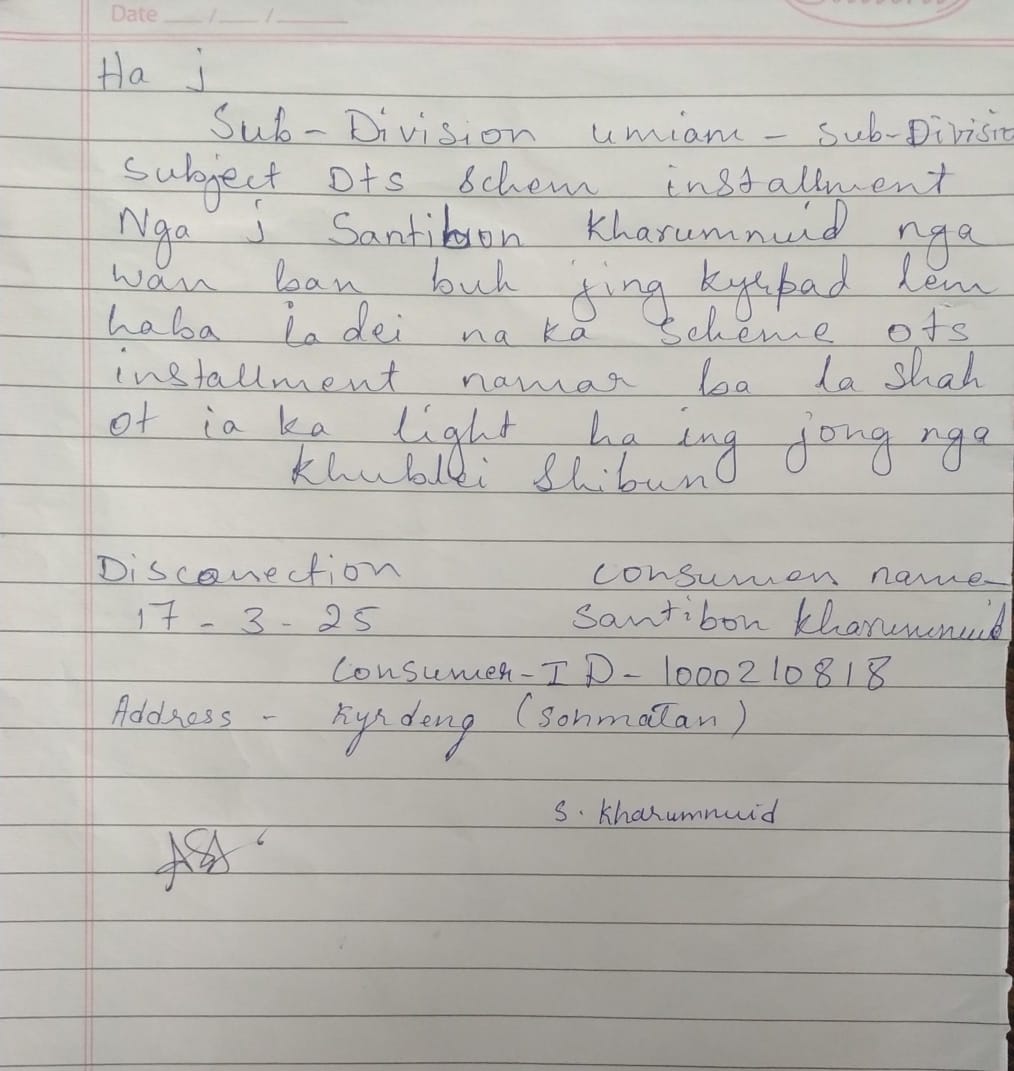 Date __/__/____
Ha j
Sub-Division umiam - Sub-Divisio
Subject Ots Schem installment
Nga j Santibon Kharumnuid nga
wan ban buh jing kyrpad lem
haba ia dei na ka Scheme ots
installment namar ba la Shah
ot ia ka light ha ing jong nga
Khublei Shibun
Disconection consumer name
17-3-25 Santibon Kharumnuid
Consumer-ID-1000210818
Address - Kyrdeng (Sohmatan)
S. Kharumnuid